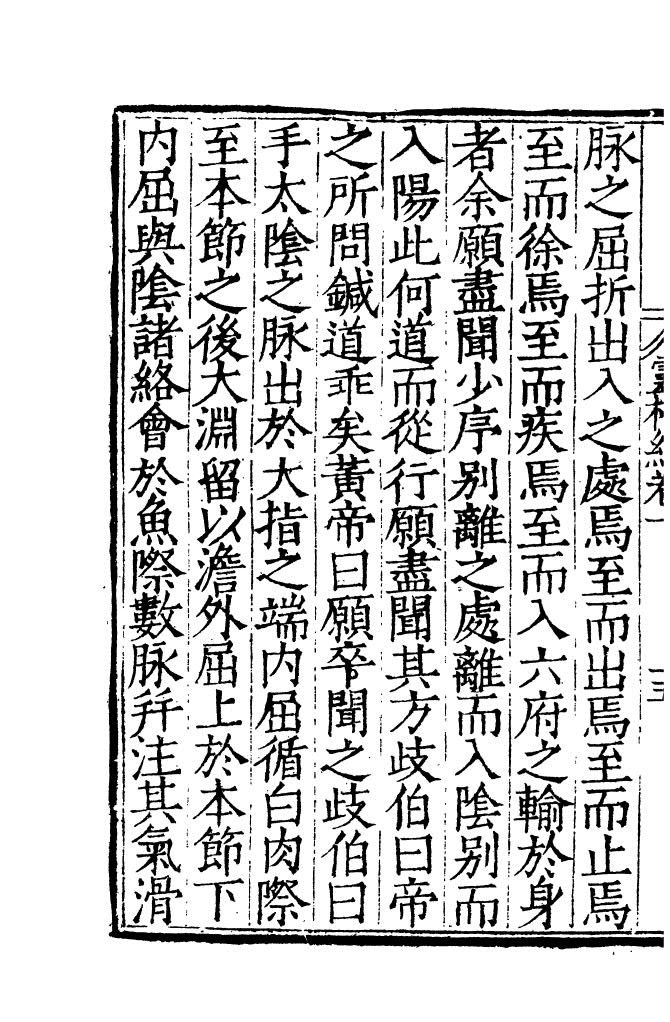 脉之屈折出入之處焉至而出焉至而止焉
至而徐焉至而疾焉至而入六府之輸於身
者余願盡聞少序别離之處離而入陰别而
入陽此何道而從行願盡聞其方歧伯曰帝
之所問鍼道乖矣黃帝曰願卒聞之歧伯曰
手太陰之脉出於大指之端内屈循白肉際
至本節之後大淵留以澹外屈上於本節下
内屈與陰諸絡會於魚際數脉并注其氣滑